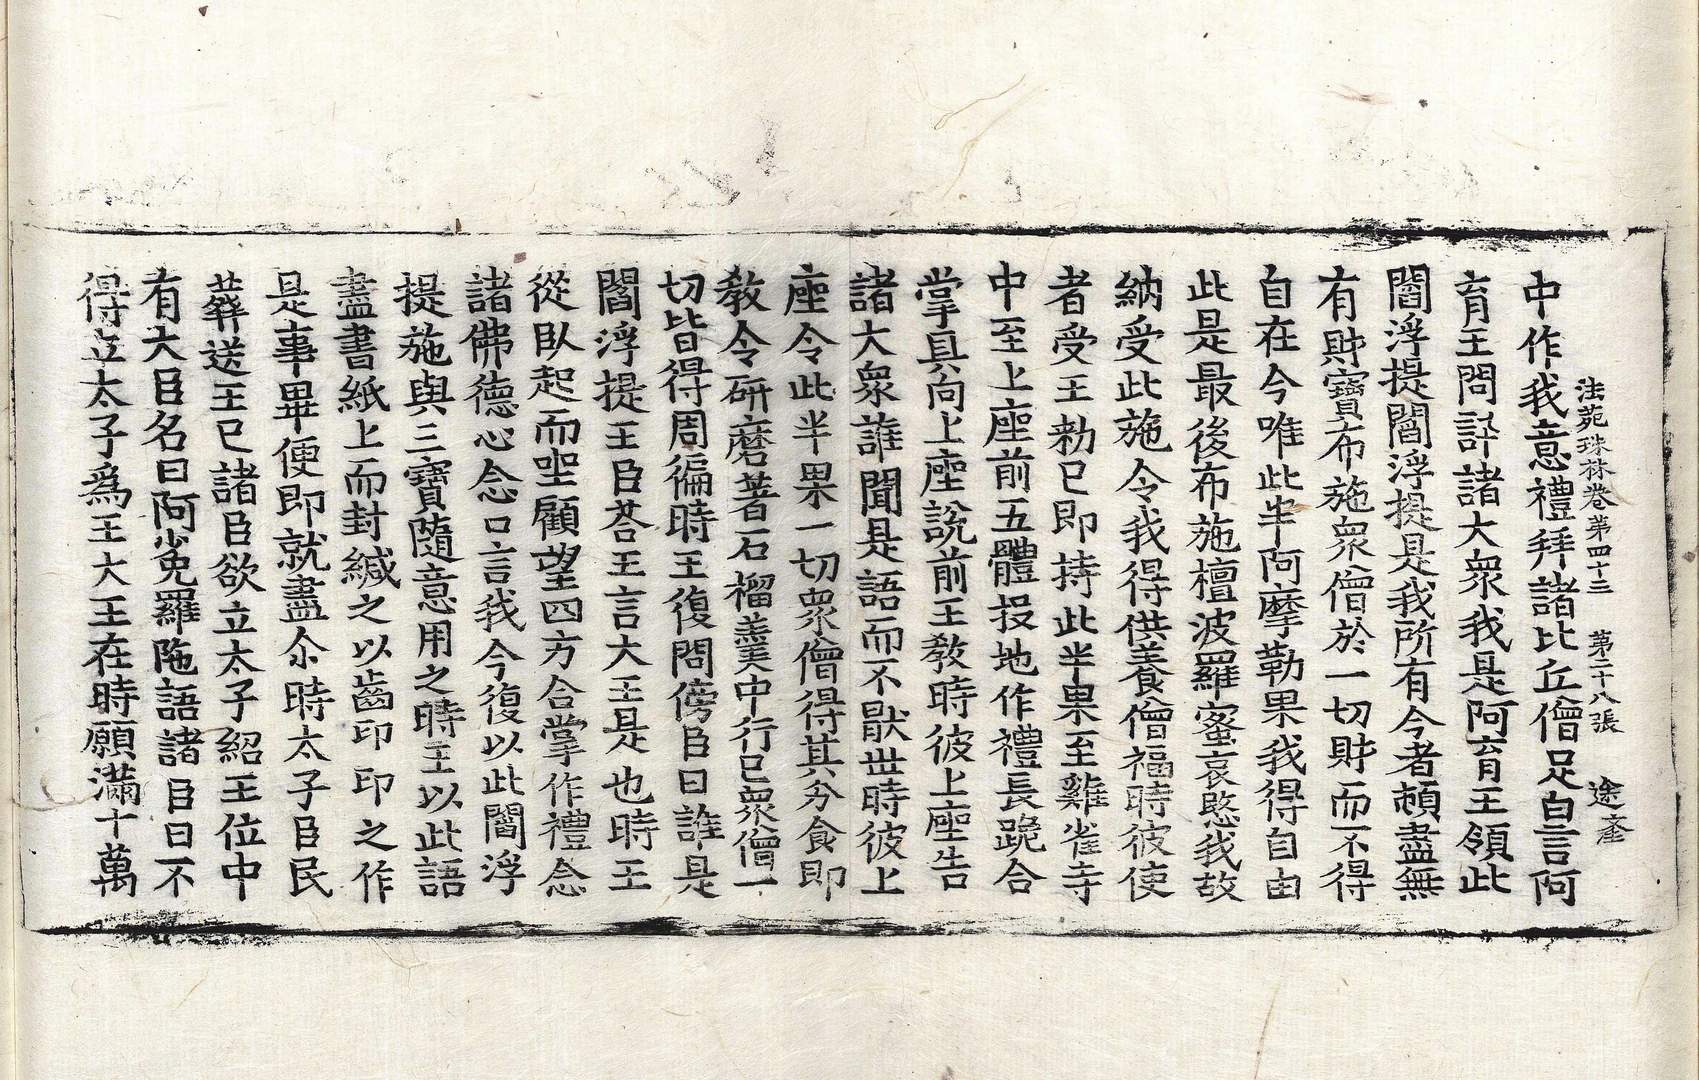 法苑珠林卷第四十三 第二十八張 途
中作我意禮拜諸比丘僧足白言阿
育王問訊諸大衆我是阿育王領此
閻浮提閻浮提是我所有今者頓盡無
有財寶布施衆僧於一切財而不得
自在今唯此半阿摩勒果我得自由
此是最後布施檀波羅蜜哀愍我故
納受此施令我得供養僧福時彼使
者受王勅已即持此半果至雞雀寺
中至上座前五體投地作禮長跪合
掌具向上座說前王教時彼上座告
諸大衆誰聞是語而不厭世時彼上
座令此半果一切衆僧得其分食即
教令研磨著石榴羹中行已衆僧一
切皆得周徧時王復問傍臣曰誰是
閻浮提王臣荅王言大王是也時王
從臥起而坐顧望四方合掌作禮念
諸佛德心念口言我今復以此閻浮
提施與三寶隨意用之時王以此語
盡書紙上而封緘之以齒印印之作
是事畢便即就盡尒時太子臣民
葬送王已諸臣欲立太子紹王位中
有大臣名曰阿㝹羅陁語諸臣曰不
得立太子爲王大王在時願滿十萬